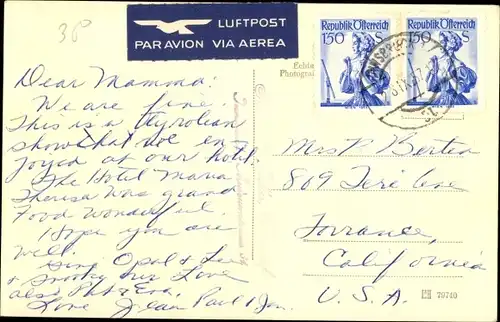 3P
LUFTPOST
PAR AVION VIA AEREA
Republik Österreich
150 S
Republik Österreich
150 S
INNSBRUCK
Photogra
Dear Mamma:
We are fine.
This is a Tyrolean
show that we en
joyed at our hotel.
The Hotel Maria
Theresa was grand
Food wonderful.
Hope you are
well.
Give Opal & Lee
& Snooky our Love
also Pht & Eva.
Love Jean Paul & Jan.
Mrs P. Berten
809 Teri Lane
Torrance,
California
U.S.A.
79740